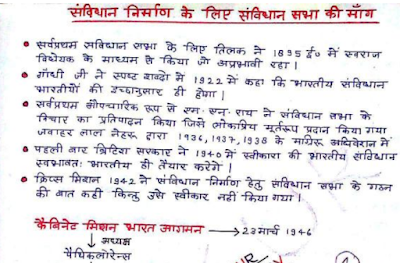 संविधान निर्माण के लिए संविधान सभा की माँग
सर्वप्रथम संविधान सभा के लिए तिलक ने 1895 ई० में स्वराज
विधेयक के माध्यम से किया जो अप्रभावी रहा।
गाँधी जी ने स्पष्ट शब्दो में 1922 में कहा कि भारतीय संविधान
भारतीयों की इच्छानुसार ही होगा।
सर्वप्रथम औपचारिक रूप से एम. एन. राय ने संविधान सभा के
विचार का प्रतिपादन किया जिसे लोकप्रिय मूर्तरूप प्रदान किया गया
जवाहर लाल नेहरू द्वारा 1936, 1937, 1938 के अधिवेशन में
पहली बार ब्रिटिश सरकार ने 1940 में स्वीकारा की भारतीय संविधान
स्वभावतः भारतीय ही तैयार करेगें।
क्रिप्स मिशन 1942 ने संविधान निर्माण हेतु संविधान सभा के गठन
की बात कही किन्तु उसे स्वीकार नही किया गया।
कैबिनेट मिशन भारत आगमन → 23 मार्च 1946
↓ अध्यक्ष
पैथिकलोरेन्स